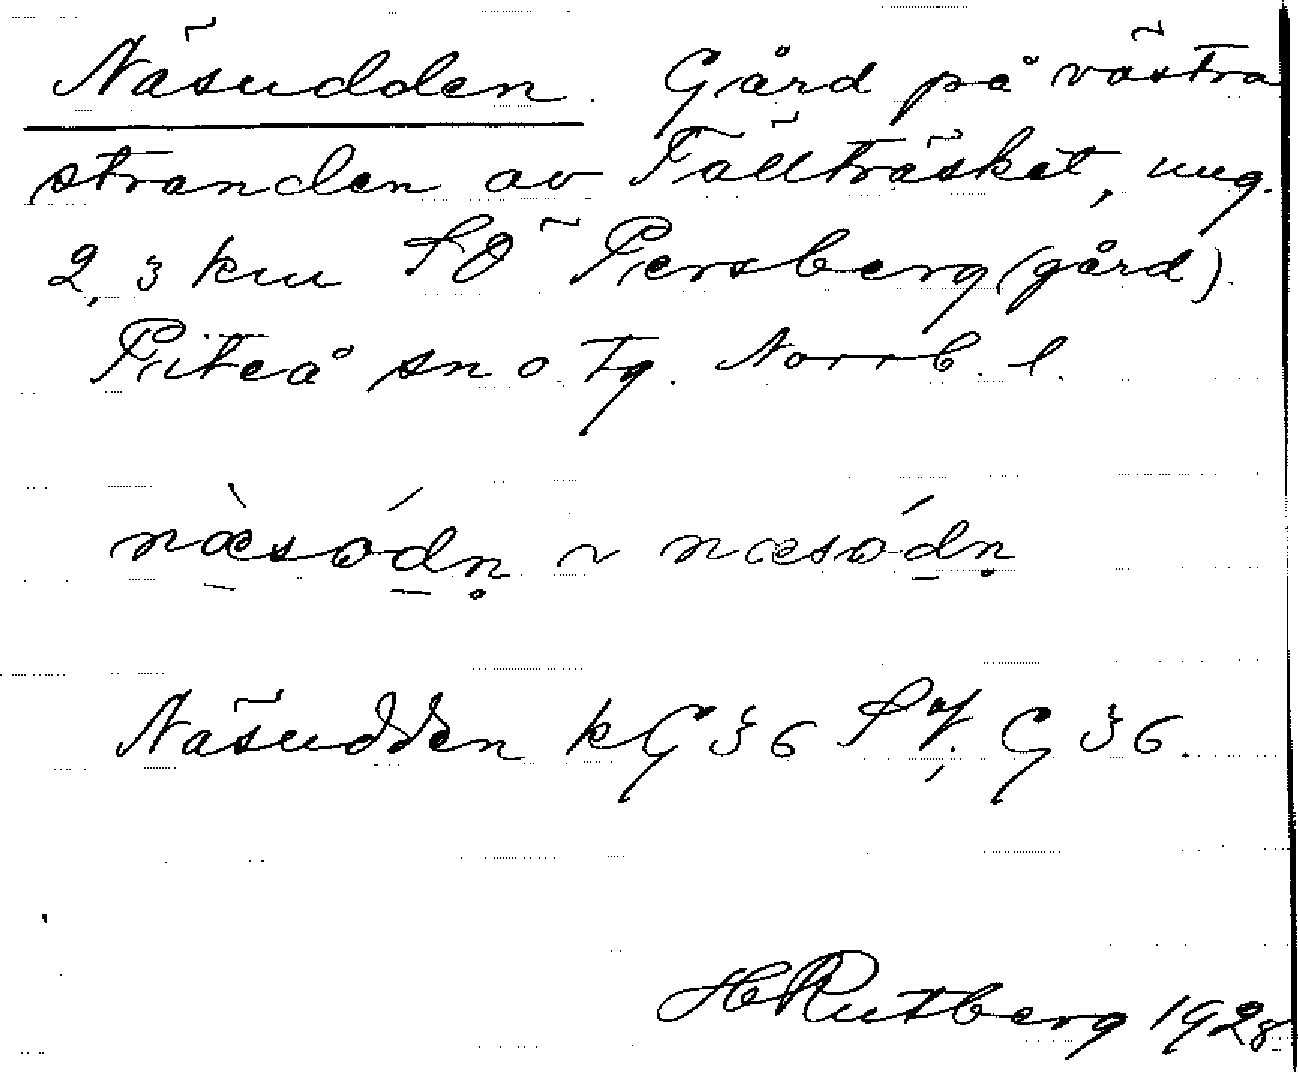 Näsudden. Gård på västra
stranden av Fällträsket, ung.
2,3 km SÖ Persberg (gård).
Piteå sn o tg. Norrb. l.
næ̀sódn̥ ~ næsódn̥
Näsudden kG 36 G 36.
H Rutberg 1928